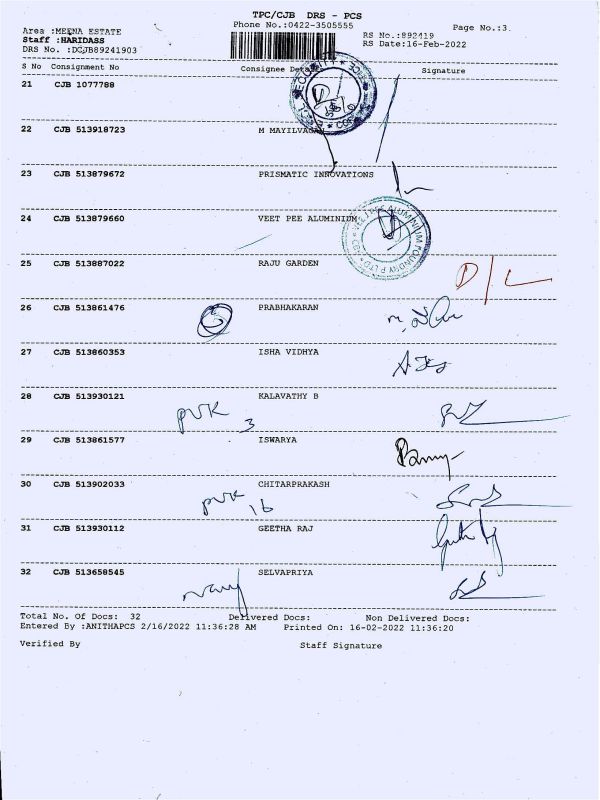 TPC/CJB DRS - PCS
Phone No.:0422-3505555
Page No.:3.
Area :MEENA ESTATE
Staff :HARIDASS
DRS No. :DCJB89241903
RS No.:892419
RS Date:16-Feb-2022
S No Consignment No Consignee Signature
21 CJB 1077788
22 CJB 513918723 M MAYILVAGAN
23 CJB 513879672 PRISMATIC INNOVATIONS
24 CJB 513879660 VEET PEE ALUMINIUM
25 CJB 513887022 RAJU GARDEN
D/L
26 CJB 513861476 PRABHAKARAN
27 CJB 513860353 ISHA VIDHYA
28 CJB 513930121 KALAVATHY B
PVK 3
29 CJB 513861577 ISWARYA
30 CJB 513902033 CHITARPRAKASH
PVK 16
31 CJB 513930112 GEETHA RAJ
32 CJB 513658545 SELVAPRIYA
Total No. Of Docs: 32 Delivered Docs: Non Delivered Docs:
Entered By :ANITHAPCS 2/16/2022 11:36:28 AM Printed On: 16-02-2022 11:36:20
Verified By Staff Signature